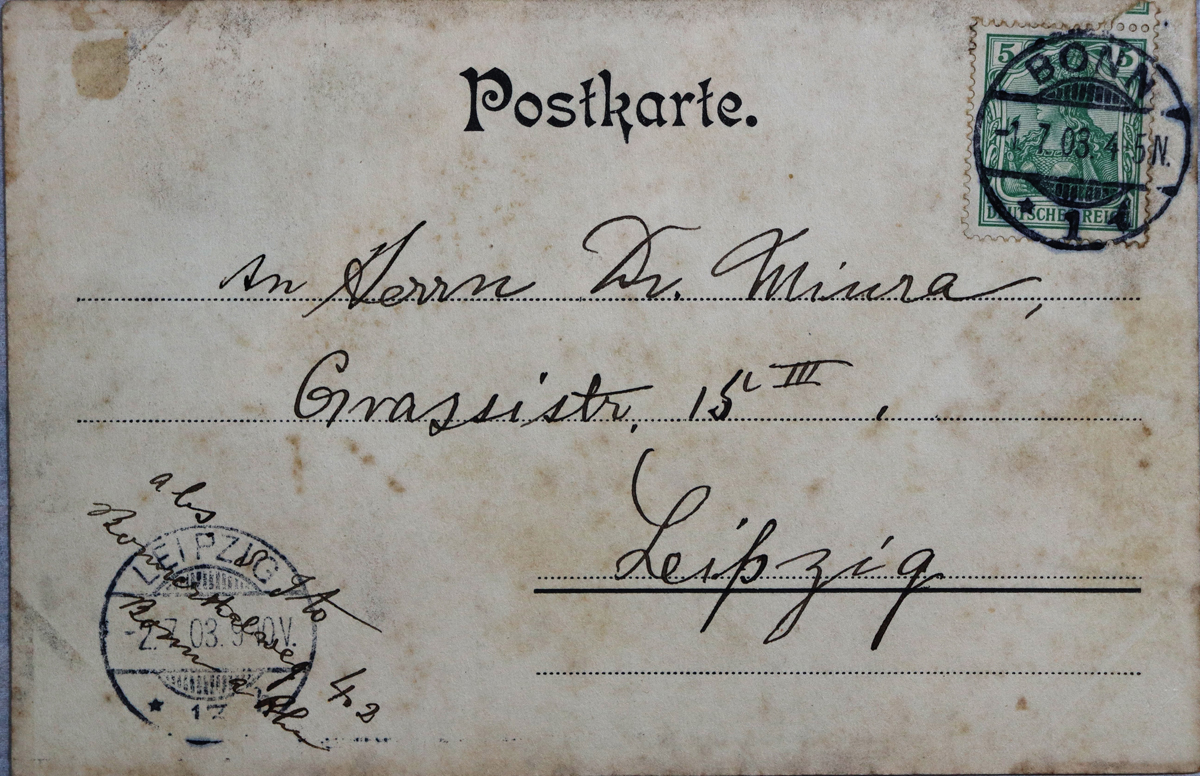 Postkarte.
5 5
DEUTSCHES REICH
BONN
-1.7.03.4-5N.
* 1 d
An Herrn Dr. Miura,
Grassistr. 15 III.
Leipzig
abs
S Ito
Bonnerthalweg 42
Bonn a Rhein
LEIPZIG
-2.7.03.9-10V.
* 13